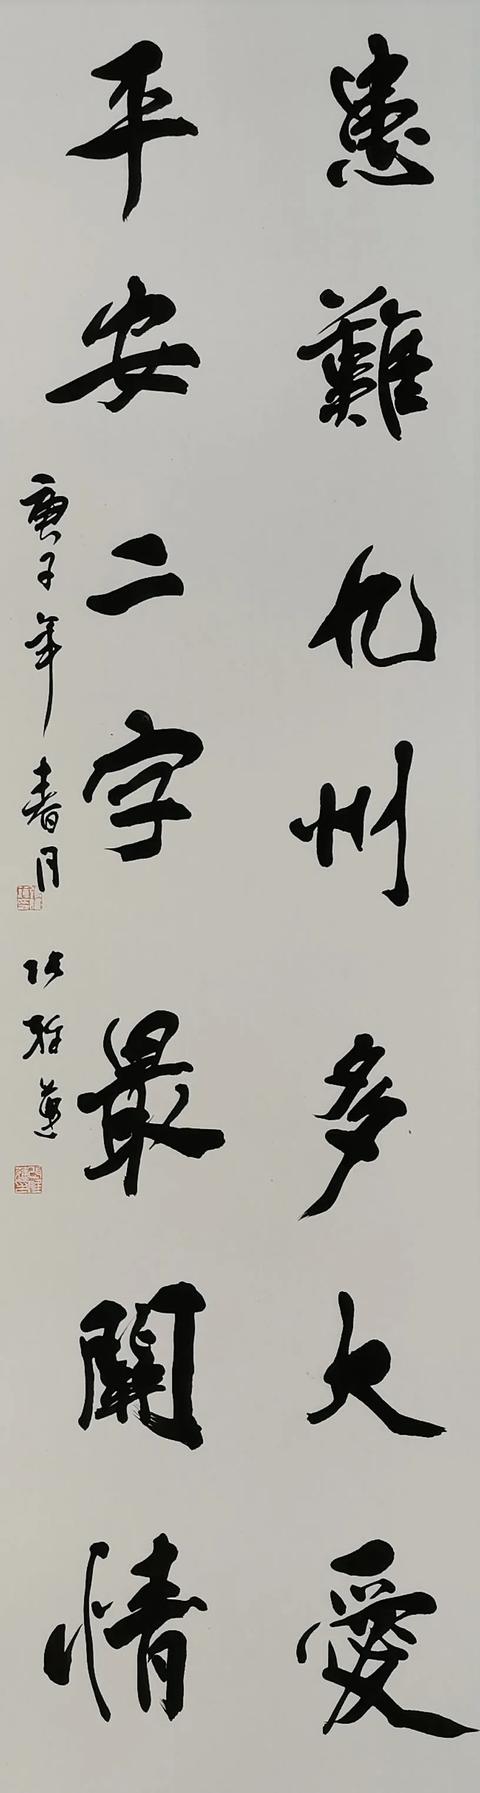 患難九州多大愛
平安二字最關情
庚子年春月
張雅蓮